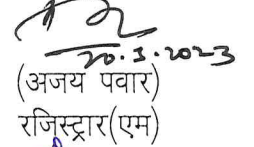 20.3.2023
(अजय पवार)
रजिस्ट्रार(एम)